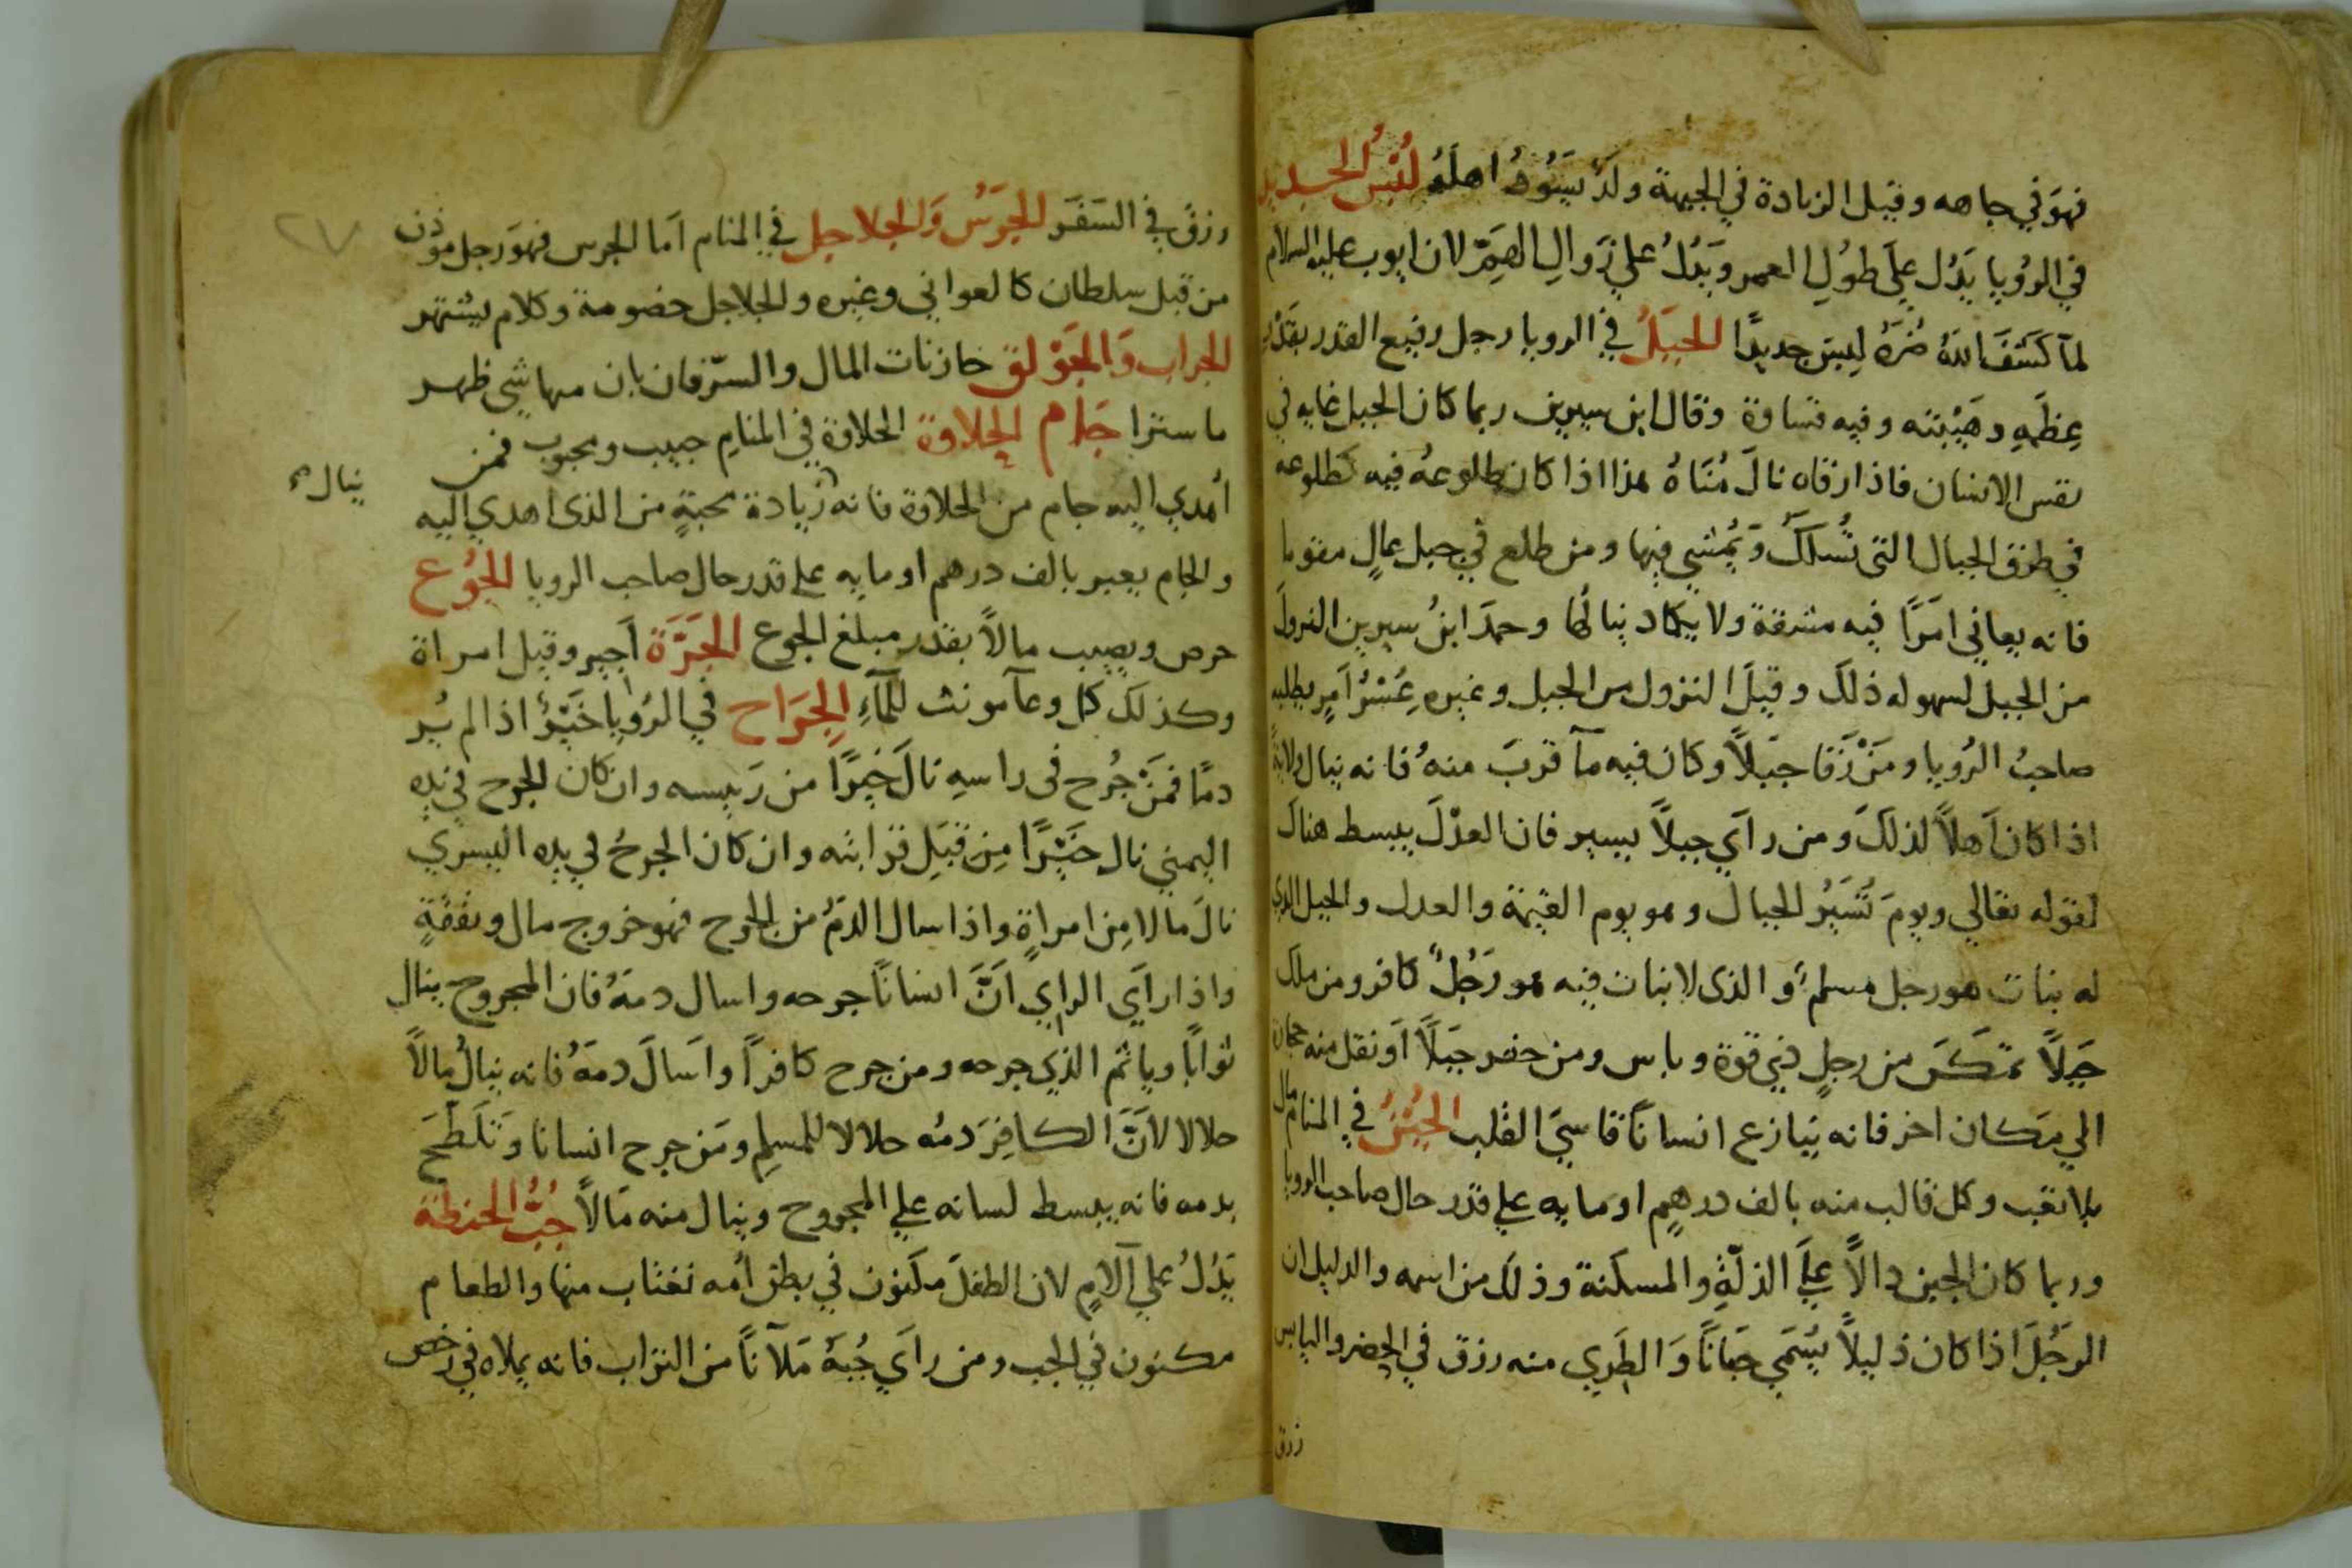 فهوَ في جاهه وقيل الزيادة في الجبهة ولدٌ يَسُودُ اهلَهُ لُبسُ الجديد
في الروُيا يَدُل على طوُلِ العمر وَيَدُلُ على زَوالِ الهمِّ لان ايوب عليه السلام
لمآ كَشَفَ اللهُ ضُرَهُ لبسَ جديدًا الجبَلُ في الرويا رجل رفيع القدر بقَدْر
عِظَمِهِ وهَيْئته وفيه قساوة وقال ابن سيرين ربما كان الجبل غايه في
نفس الانسان فاذا ارقاه نالَ مُنَاهُ هذا اذا كان طلوعهُ فيه كطلوعه
في طرق الجبال التى تُسلَكُ وَيُمْشي فيها ومن طلع في جبل عالٍ مقوما
فانه يعاني امرًا فيه مشقة ولا يكاد ينالُها وحمدَ ابنُ سيرين النزولَ
من الجبل لسهوله ذلكَ وقيلَ النزول من الجبل وغيره عُسْرُ اَمرٍ يطلبه
صاحبُ الرُويا ومَنْ رَقا جبَلاً وكان فيه مآ قربَ منهُ فانه ينال ولايةً
اذا كان اَهلاً لذلكَ ومن رآَي جبلاً يسير فان العدْلَ يبسط هناكَ
لقوله تعالي ويومَ نُسَيرُ الجبال وهو يوم القيمة والعدل والجبل الذي
له نبات هو رجل مسلمٌ والذى لا نبات فيه هو رَجُلٌ كافر ومن ملك
جَبلاً تمكَنَ من رجلٍ ذي قوة وباس ومن حفر جبَلاً اَو نقل منه حجارة
الي مَكان اخر فانه ينازع انسانًا قاسيَ القلب الجُبنُ في المنام مال
بلا تعب وكل قالب منه بالف درهمٍ او مايه على قدر حال صاحب الرويا
وربما كان الجبن دالاً عليَ الذلّةِ والمسكنة وذلك من اسمه والدليل ان
الرَجُلَ اذا كان ذليلاً يُسَمَي جَبانًا وَالطَري منه رزق في الحضر واليابس
رزق
رزقٌ في السَفَر الجَرَسُ وَالجلاجل في المنام اَما الجرس فهوَ رجل موذن
من قبل سلطان كالعواني وغيره والجلاجل خصومة وكلام يشتهر
الجراب وَالجَوْلق خازنات المال والسرّ فان بان منها شى ظهر
ما سترا جَام الحلاوة الحلاوة في المنام حبيب ومحبوب فمن
أُهدي اليه جام من الحلاوة فانه زيادة محبةٍ من الذى اهدي اليه
ينال
والجام يعبر بالف درهم او مايه على قدر حال صاحب الرويا الجُوع
حرص ويصيب مالاً بقدر مبلغ الجوع الجَرَّة اَجير وقيل امراة
وكذلك كل وعآ مونث للمآءِ الجِرَاح في الرُويا خَيْرٌ اذا لم يُر
دمًا فمَنْ جُرح فى راسهِ نالَ خيرًا من رَييسه وان كان الجرح في يده
اليمني نال خَيْرًا مِن قبَلِ قرابته وان كان الجرحُ في يده اليسري
نالَ مالا مِن امراةٍ واذا سال الدمُ من الجرح فهو خروج مال ونفقةٍ
واذا رآَي الراي اَنَّ انسانًا جرحه واسال دمهُ فان المجروح ينال
ثوابًا وياثم الذي جرحه ومن جرح كافرًا واَسالَ دمهُ فانه ينالُ مالاً
حلالا لاَنَّ الكافِرَ دمُه حلالا للمسلم ومَن جرح انسانا وَتَلَطَّخَ
بدمه فانه يبسط لسانه علي المجروح وينال منه مَالاً جُبُّ الحنطة
يَدُلُ علي آلامِ لان الطفلَ مكنون في بطن اُمه نغتاب منها والطعام
مكنون في الجب ومن رآَي جُبهُ مَلآنًا من التراب فانه يملاه في رخص